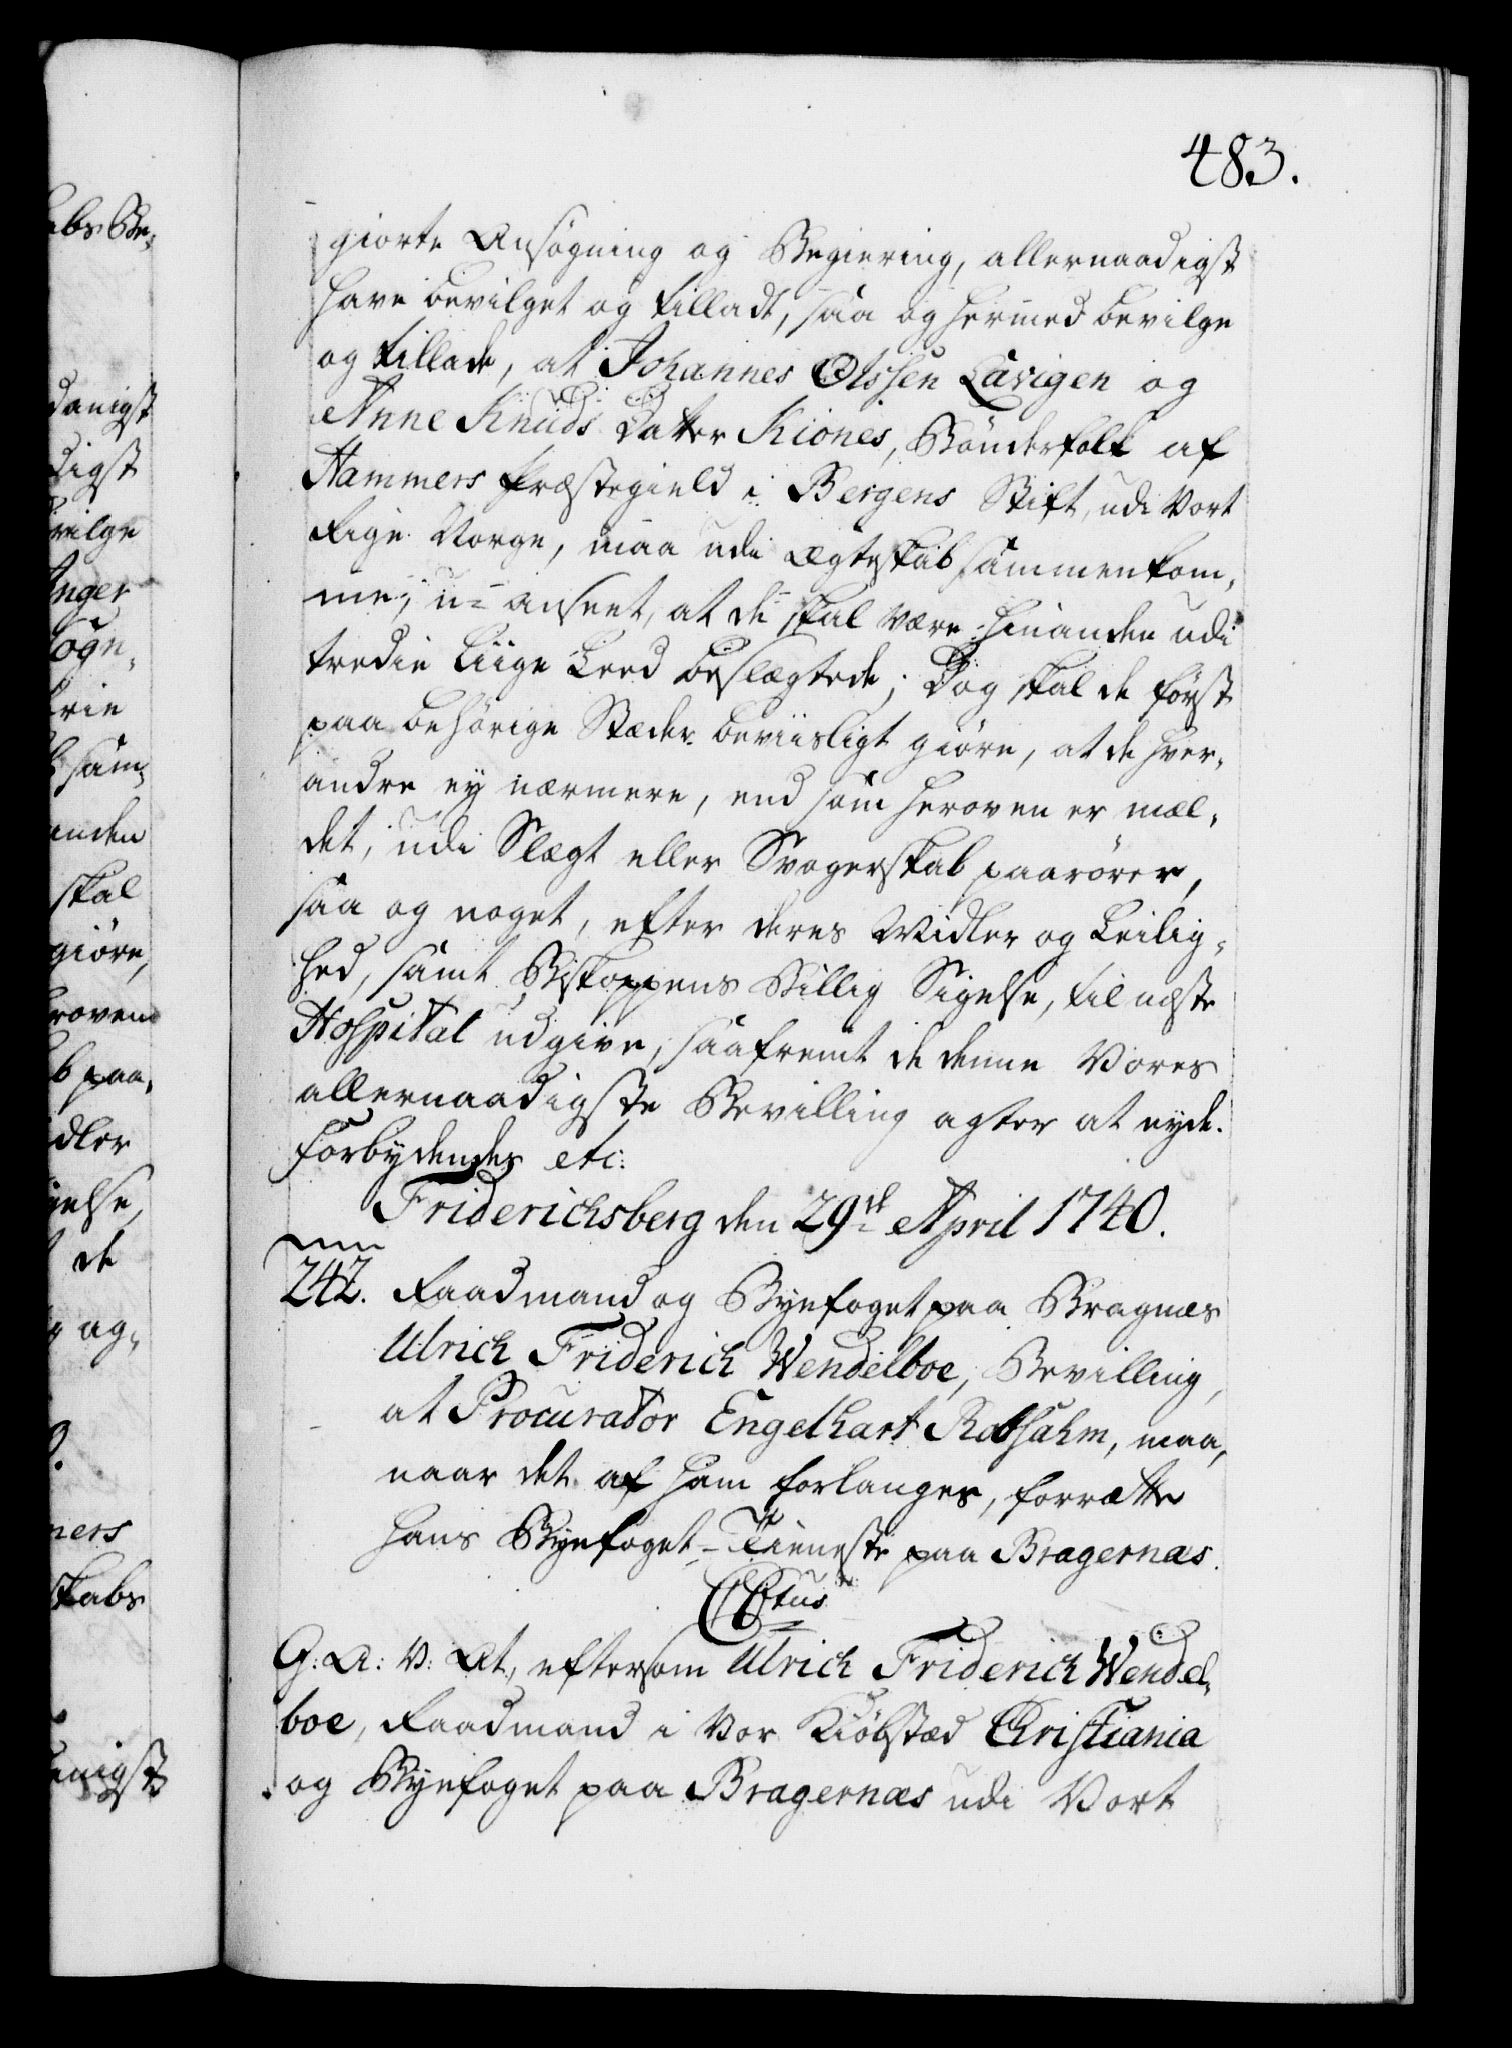 483.
giorte Ansøgning og Begiering, allernaadigst
have bevilget og tilladt, saa og hermed bevilge
og tillade, at Johannes Olssen Lavigen og
Anne Knuds Datter Kiones, Bønderfolk af
Hammers Præstegield i Bergens Stift, udi Vort
Rige Norge, maa udi Ægteskab sammenkom-
me, u-anseet, at de skal være hinanden udi
tredie Liige Leed beslægtede; Dog skal de først
paa behørige Stæder beviisligt giøre, at de hver-
andre ey nærmere, end som heroven er mel-
det, udi Slægt eller Svogerskab paarører,
saa og noget, efter deres Midler og Leilig-
hed, samt Biskoppens billig Sigelse, til næste
Hospital udgive, saafremt de denne Vores
allernaadigste Bevilling agter at nyde.
Forbydendes etc:
Friderichsberg den 29de April 1740.
242. Raadmand og Byefoget paa Bragnæs
Ulrich Friderich Wendelboe, Bevilling,
at Procurator Engelhart Robsahm, maa,
naar det af ham forlanges, forrætte
hans Byefoget-Tieneste paa Bragernæs.
G: A: V: At, eftersom Ulrich Friderich Wendel-
boe, Raadmand i Vor Kiøbstæd Christiania
og Byefoget paa Bragernæs udi Vort